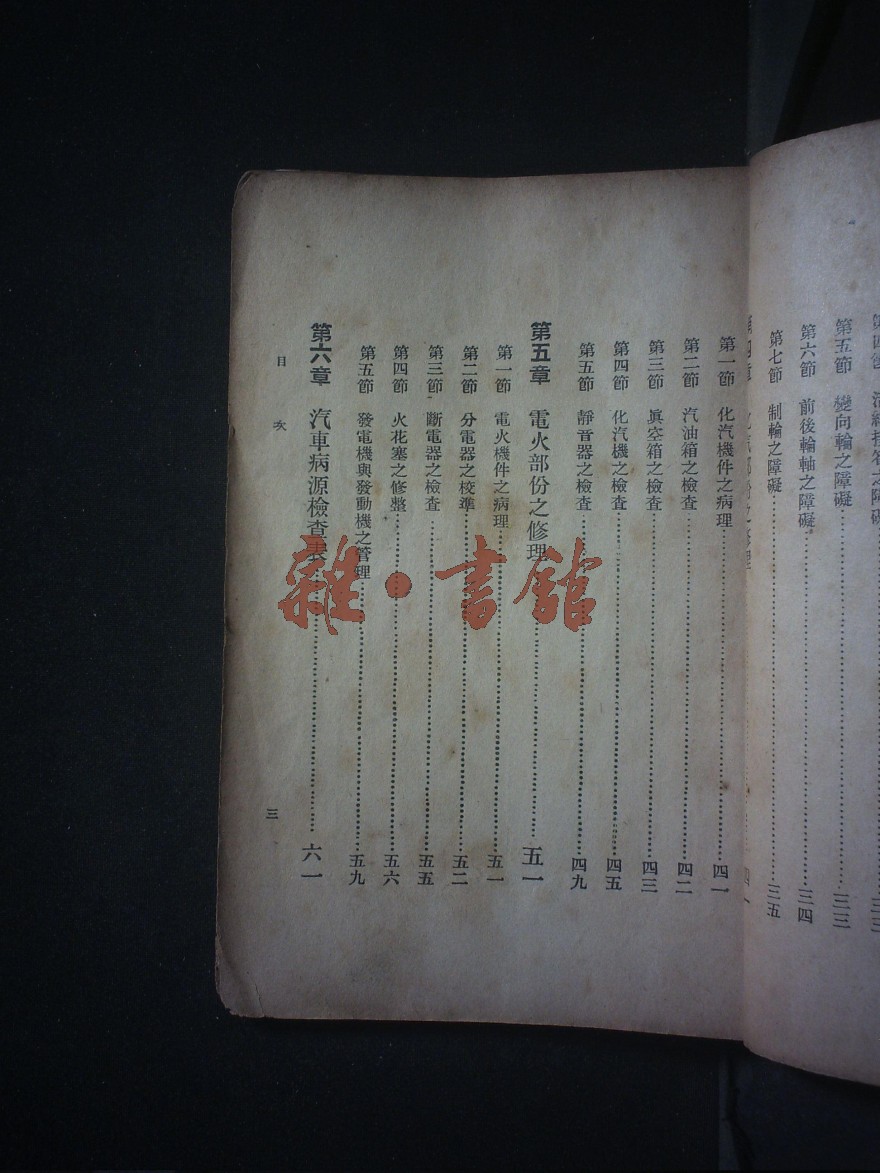 變向輪之障礙 三三
第五節
第六節 前後輪軸之障礙 三四
第七節 制輪之障礙 三五
第一節 化汽機件之病理 四一
第二節 汽油箱之檢查 四二
第三節 眞空箱之檢查 四三
第四節 化汽機之檢查 四五
第五節 靜音器之檢查 四九
第五章 電火部份之修理 五一
第一節 電火機件之病理 五一
第二節 分電器之校準 五二
第三節 斷電器之檢查 五五
第四節 火花塞之修整 五六
第五節 發電機與發動機之管理 五九
第六章 汽車病源檢查表 六一
目次
三
雜·書館